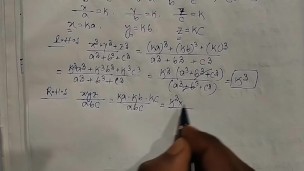 x/a = K y/b = K z/c = K
x = Ka y = Kb z = KC
Ratios x³+y³+z³/a³+b³+c³ = (Ka)³+(Kb)³+(KC)³/a³+b³+c³
= K³a³+K³b³+K³c³/a³+b³+c³ = K³(a³+b³+c³)/(a³+b³+c³) = K³
Ratios xyz/abc = Ka·Kb·KC/abc = K³